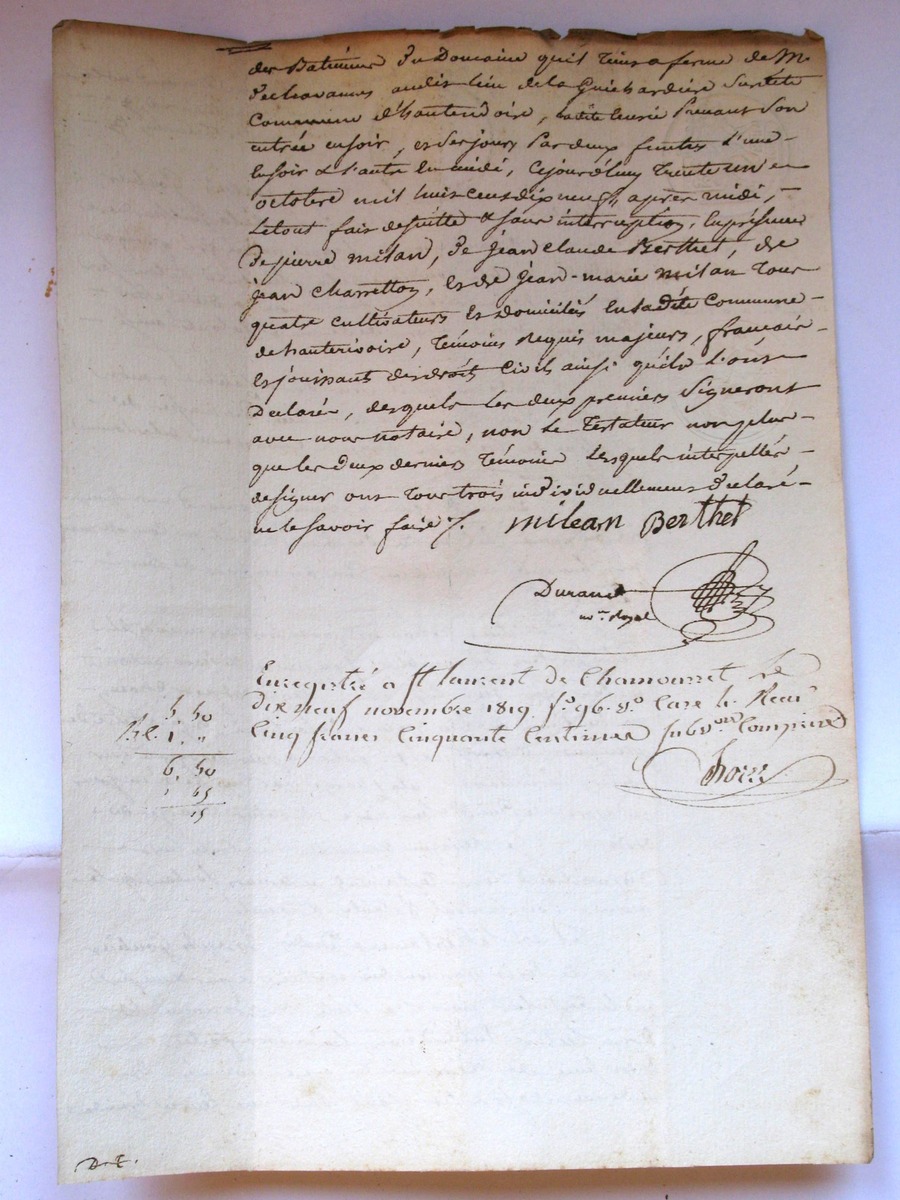 des Batimens du Domaine quil tient a ferme de M.
dechavannes audit lieu de la Guichardière sur dte
Commune d'hauterivoire, ladite Curie prenant son
entrée en soir, et ses jours par deux fentes l'une
en soir & l'autre en midi, cejourdhuy trente un
octobre mil huit cent dix neuf, après midi,
le tout fait desuitte & sans interruption, en présence
de pierre milan, de jean claude Berthet, de
jean Charretton, et de jean-marie milan tous
quatre cultivateurs et domiciliés en ladte Commune
de hauterivoire, témoins requis majeurs, français
et jouissant des droits Civils ainsi quils l'ont
Declaré, desquels les deux premiers signeront
avec nous notaire, non le Testateur non plus
que les deux derniers témoins lesquels interpellés
de signer ont tous trois individuellement declaré
ne le savoir faire /.
milean Berthet
Durand
nre Royal
Enregistré a st laurent de Chamousset le
dix neuf novembre 1819 fo. 96. vo. Case 4. Recu
Cinq francs Cinquante Centimes subvon Comprise
5, 50
1, "
6, 50
65
15
D. T.